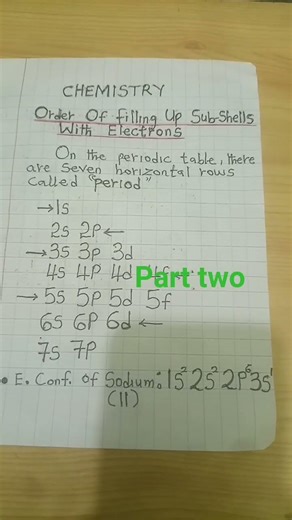 CHEMISTRY
Order Of filling Up Sub-Shells
With Electrons
On the periodic table, there
are seven horizontal rows
called "period"
→1s
2s 2p ←
→ 3s 3p 3d
4s 4p 4d 4f ←
Part two
→ 5s 5p 5d 5f
6s 6p 6d ←
7s 7p
• E. Conf. of Sodium: 1s² 2s² 2p⁶ 3s¹
(11)